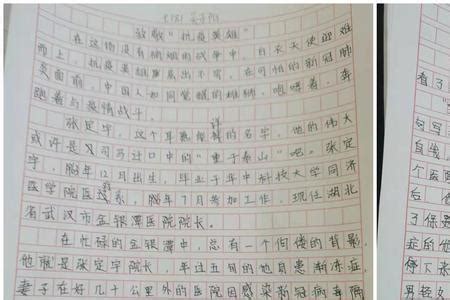 致敬"抗疫英雄"
在这场没有硝烟的战争中,白衣天使迎难
而上,抗疫英雄屡屡出不穷,在可怕的新冠肺
炎面前,中国人如同觉醒的雄狮,咆哮着,奔
跑着与疫情战斗。
张定宇,这个耳熟能详的名字,他的伟大
或许是又司马迁口中的"重于泰山"吧。张定
宇,年12月出生,毕业于华中科技大学同济
医学院医疗系,年7月参加工作,现任湖北
省武汉市金银潭医院院长。
在忙碌的金银潭中,总有一个佝偻的背影,
他就是张定宇院长,年过五旬的他身患渐冻症,
妻子在好几十公里外的医院因感染新冠病毒隔
看了
句写
自我
个医
后
了保
症的他
停下来
男轻女